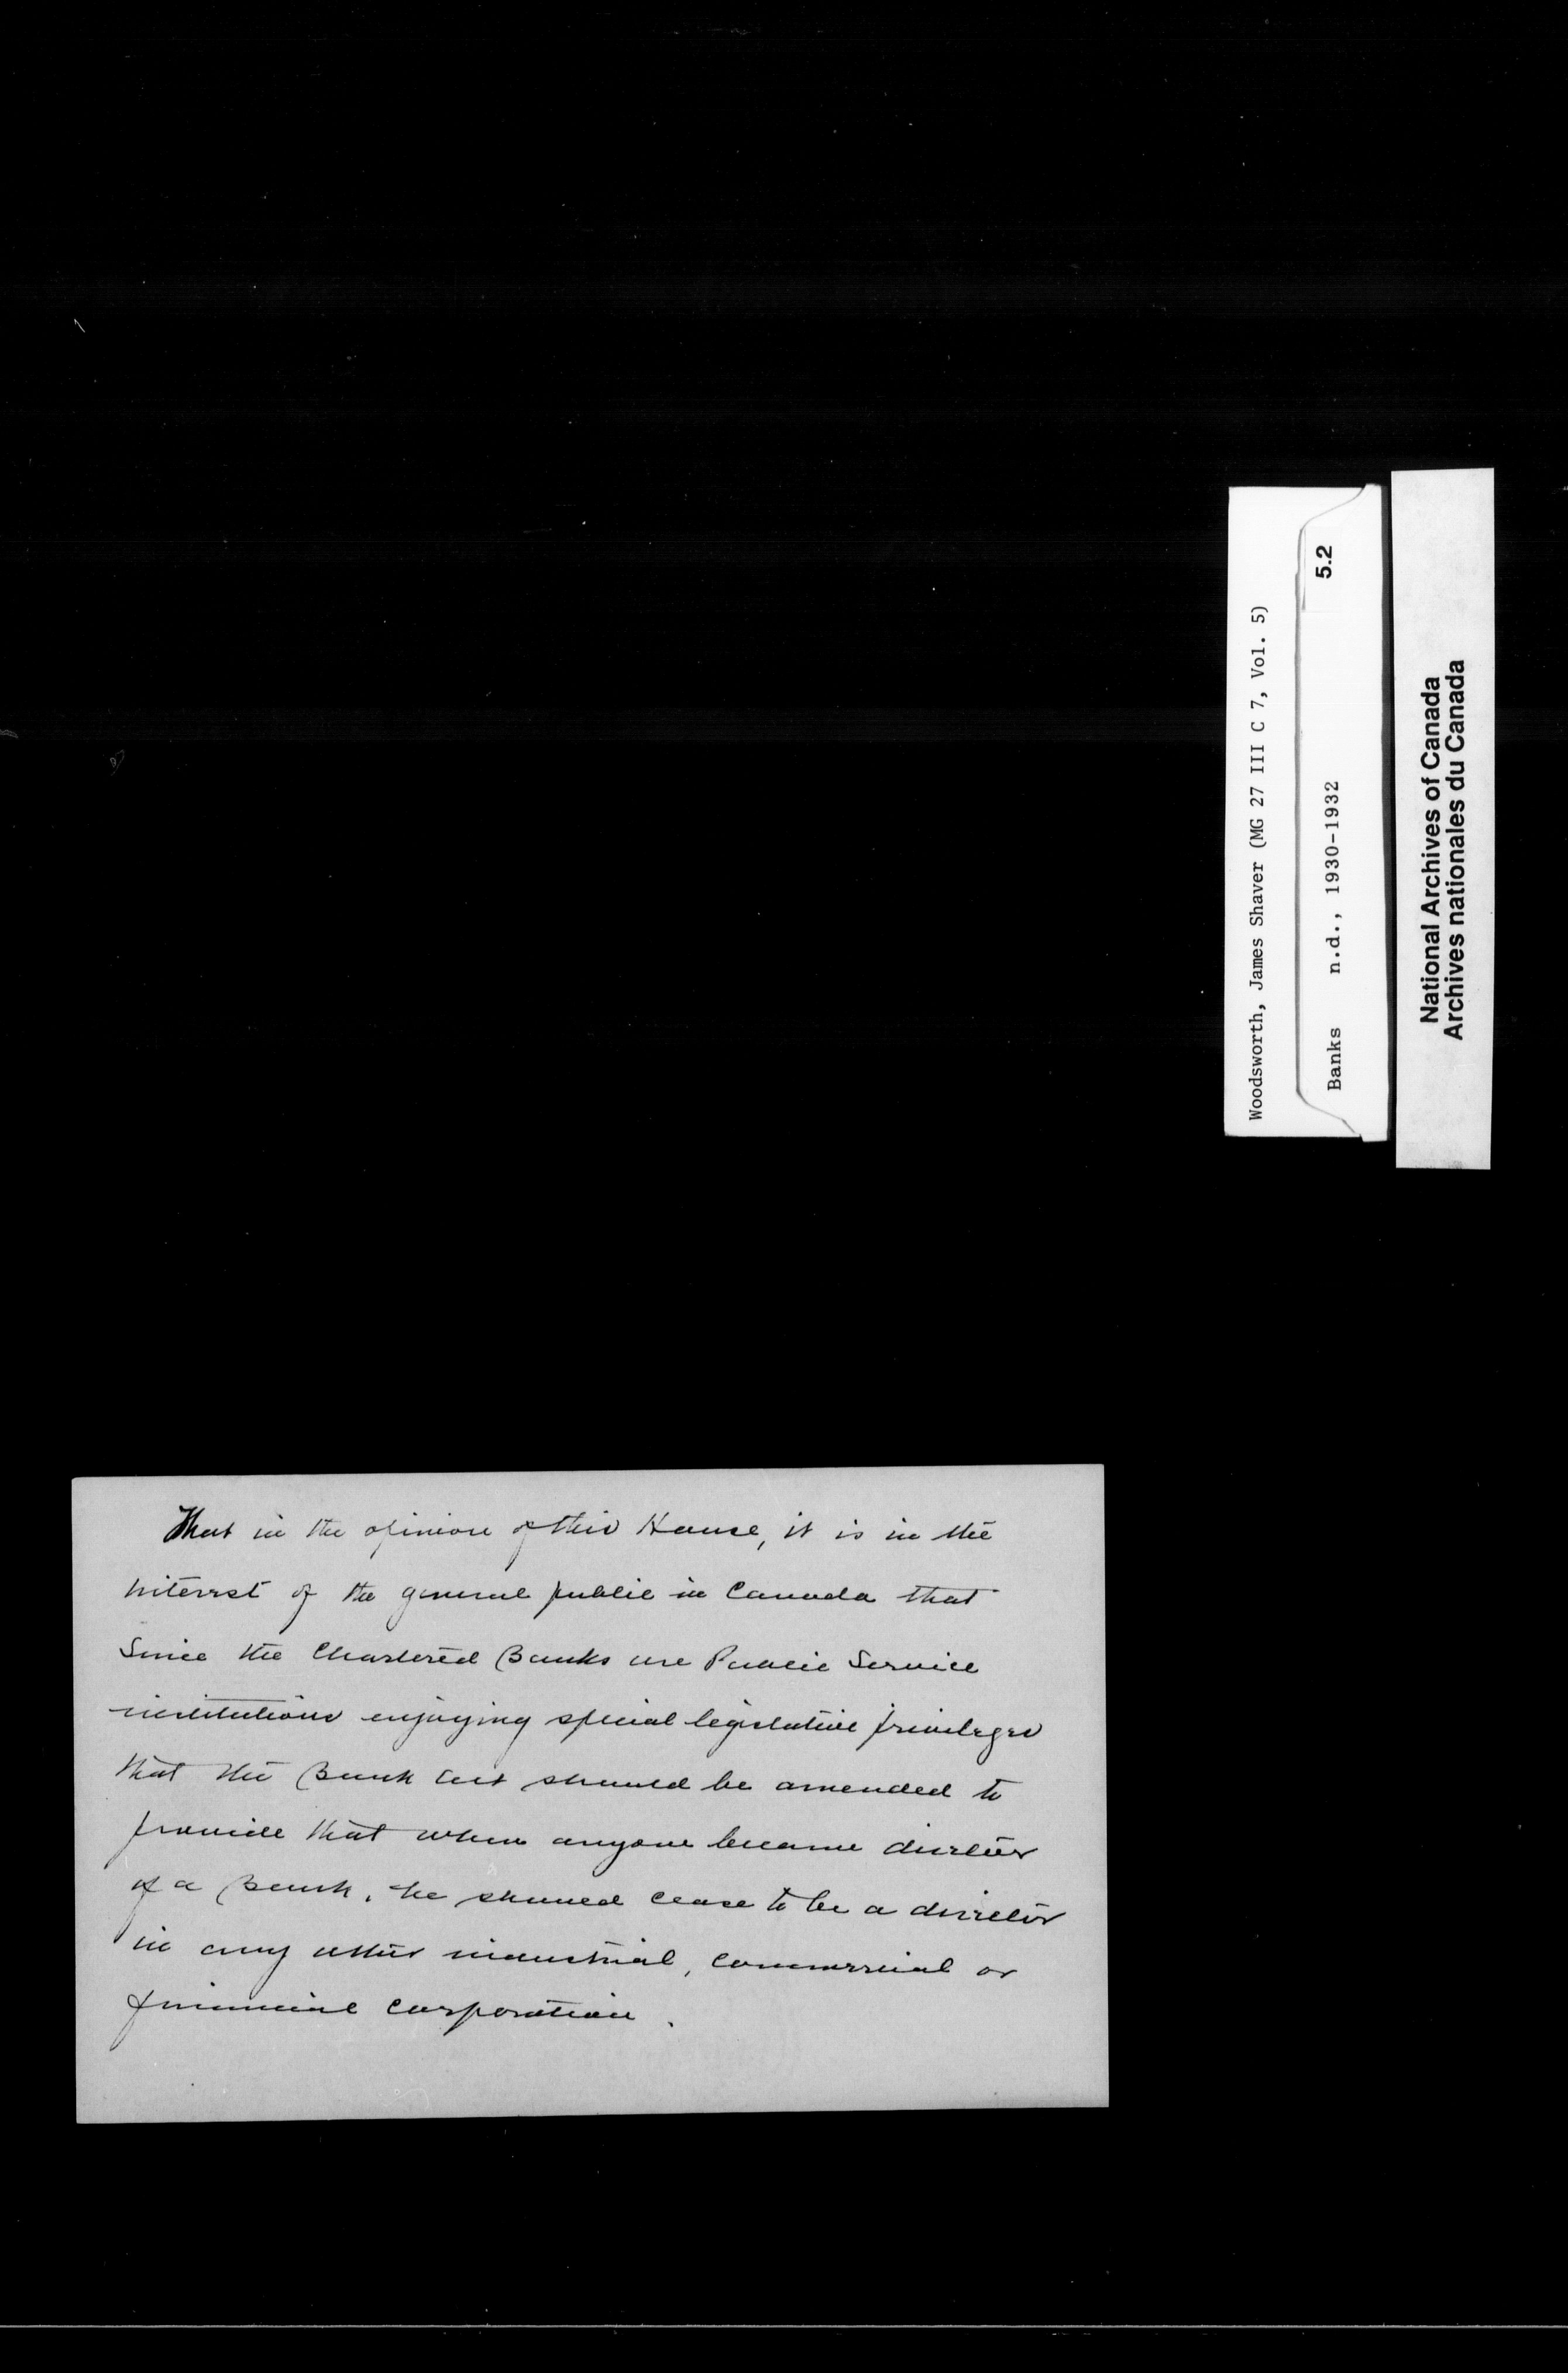 Woodsworth, James Shaver (MG 27 III C 7, Vol. 5)
5.2
Banks n.d., 1930-1932
National Archives of Canada
Archives nationales du Canada
That in the opinion of this House, it is in the
interest of the general public in Canada that
since the Chartered Banks are Public Service
institutions enjoying special legislative privileges
that the Bank Act should be amended to
provide that when anyone became director
of a Bank, he should cease to be a director
in any other industrial, commercial or
financial corporation.